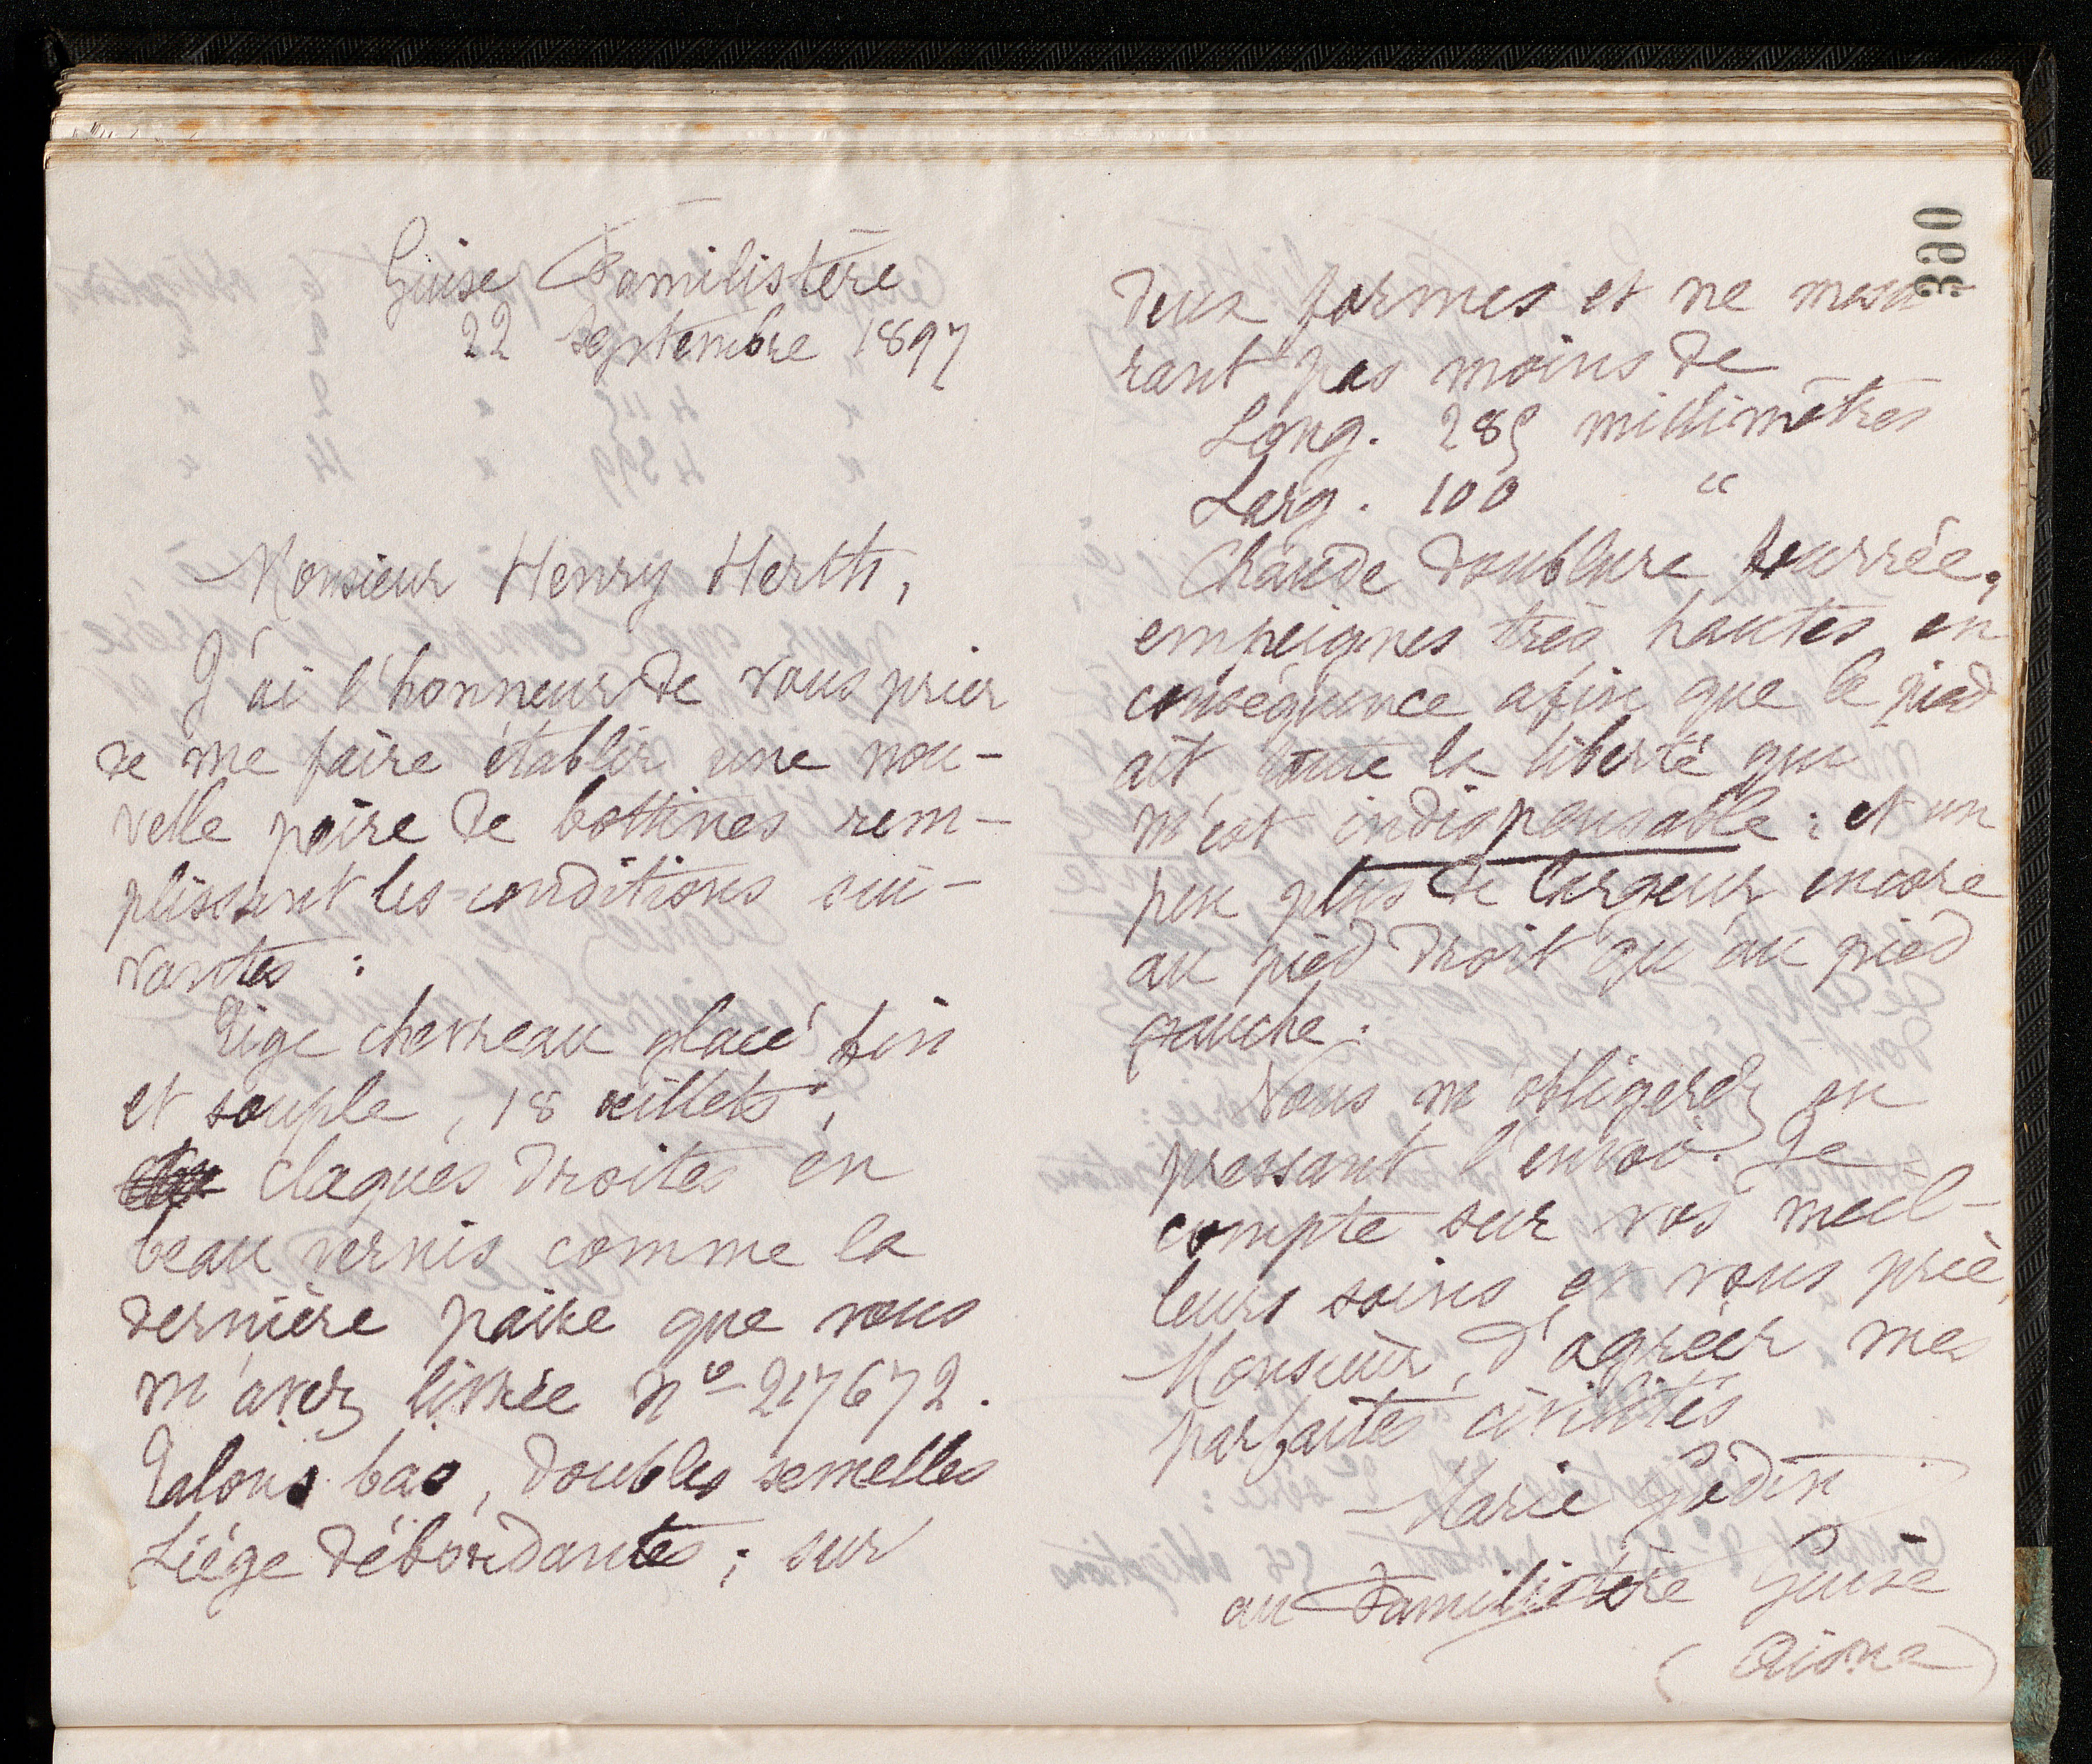 Guise Familistère
22 septembre 1897
Monsieur Henry Herth,
J'ai l'honneur de vous prier
de me faire établir une nou-
velle paire de bottines rem-
plissant les conditions sui-
vantes :
Tige chevreau glacé fin
et souple, 18 œillets,
claques droites en
beau vernis comme la
dernière paire que vous
m'avez livrée nº 217672.
Talons bas, doubles semelles
Liége débordantes ; sur
390
deux formes et ne mesu
rant pas moins de
Long. 285 millimètres
Larg. 100 "
Chaude doublure fourrée,
empeignes très hautes en
conséquence afin que le pied
ait toute la liberté qui
m'est indispensable : et un
peu plus de largeur encore
au pied droit qu'au pied
gauche.
Vous m'obligerez en
pressant l'envoi. Je
compte sur vos meil-
leurs soins et vous prie,
Monsieur, d'agréer mes
parfaites civilités
Marie Godin
au Familistère Guise
(Aisne)